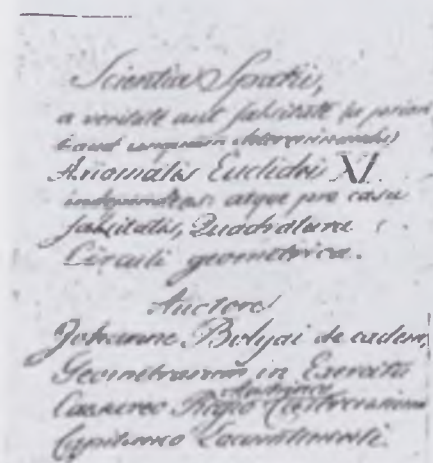 Scientia Spatii,
a veritate aut falsitate (a priori
haud unquam
Axiomatis Euclidei XI.
independens: atque pro casu
falsitatis, Quadratura
Circuli geometrica.
Auctore
Johanne Bolyai de eadem,
Geometrarum in Exercitu
Caesareo Regio Austriaco Castrensium
Capitaneo